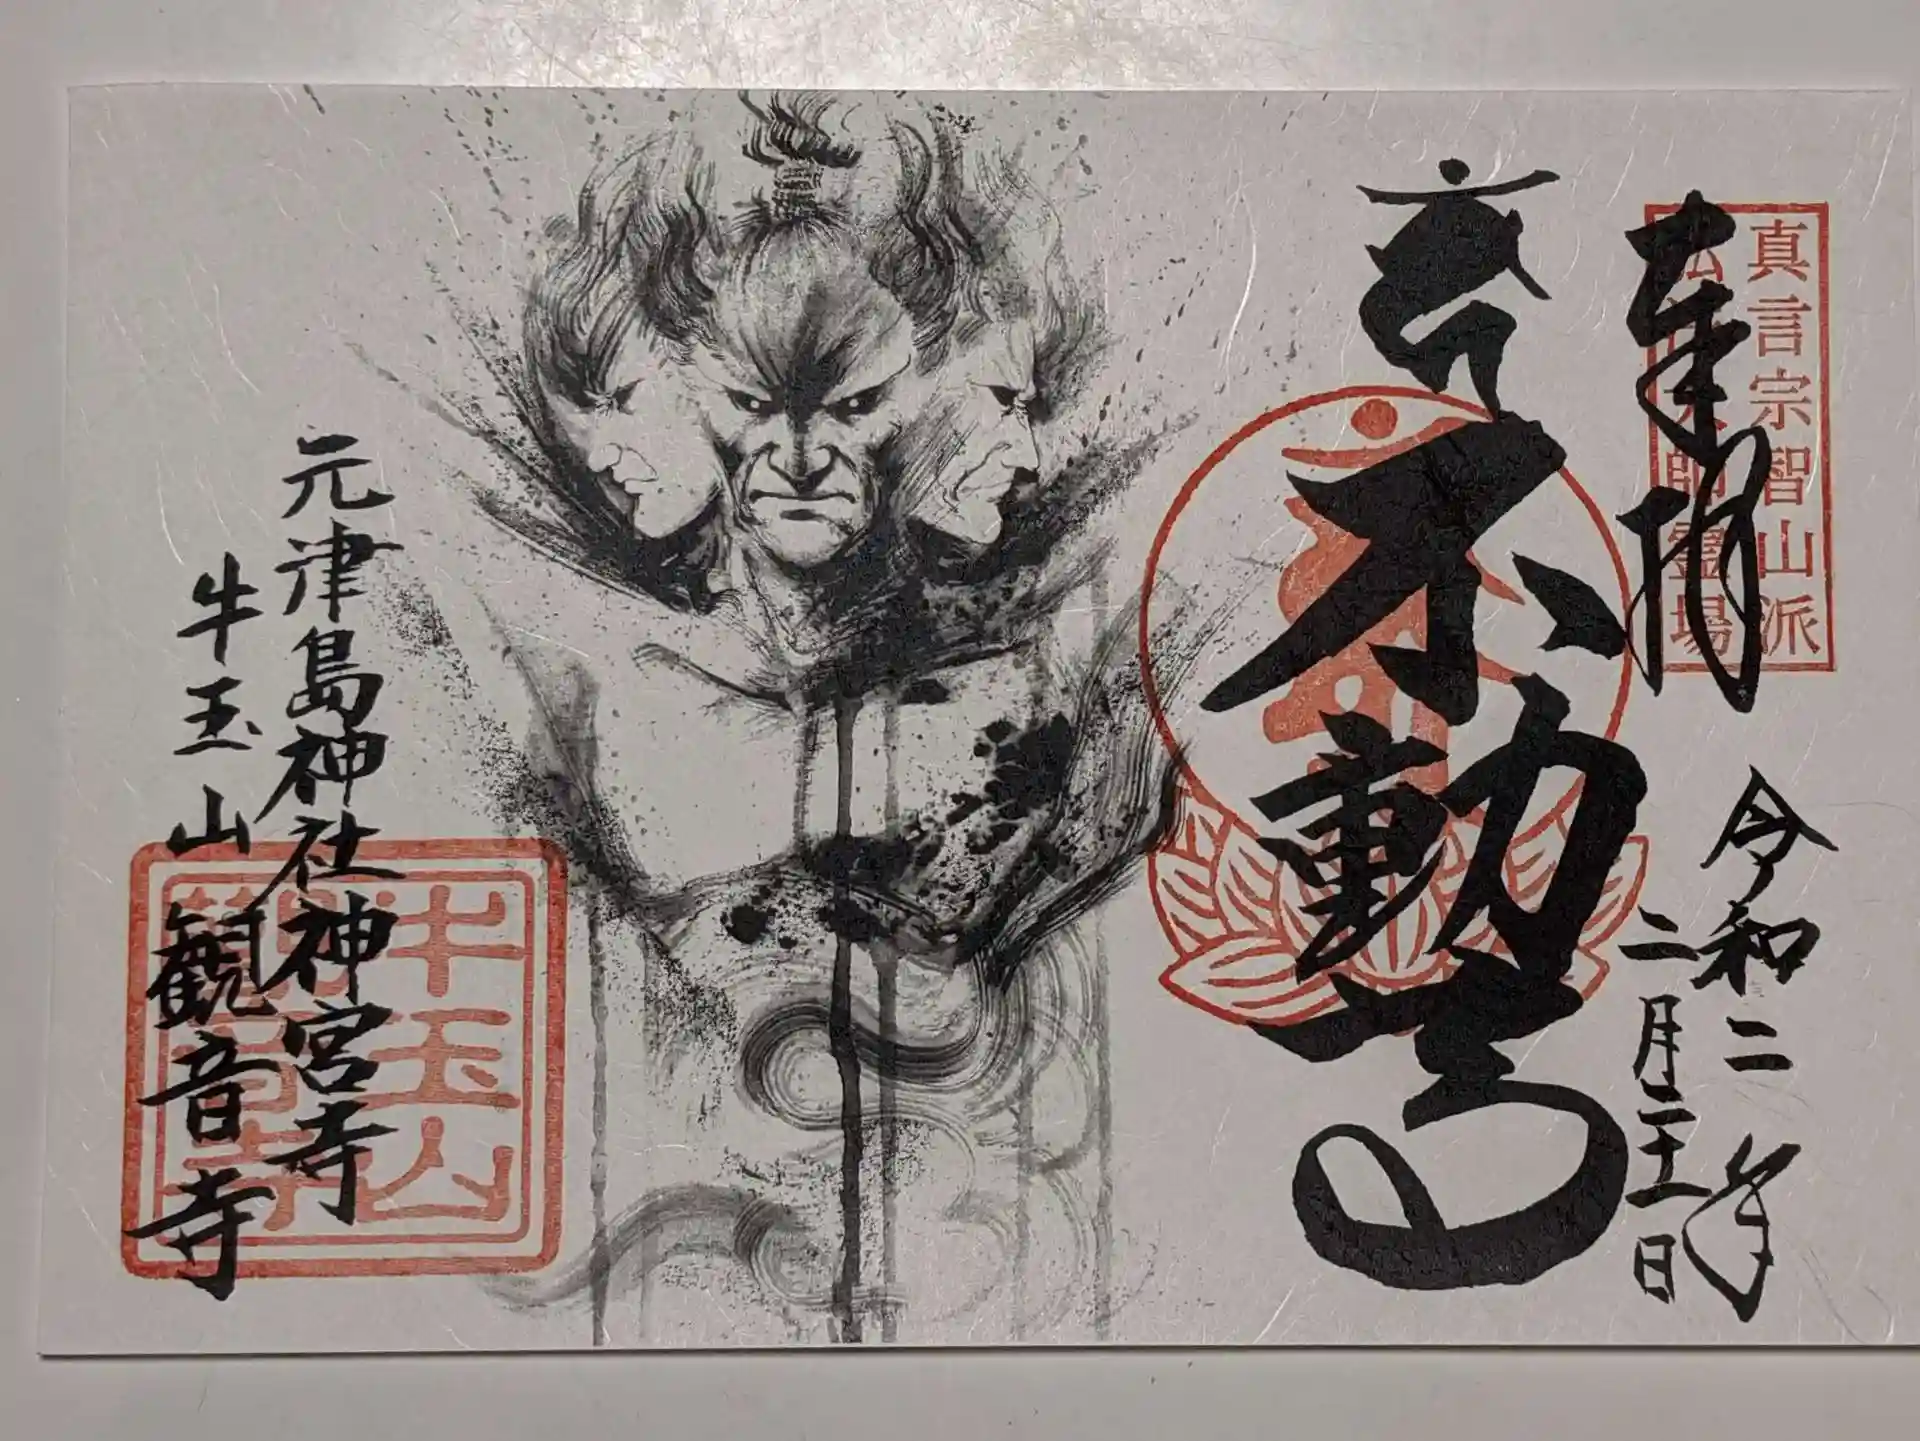 真言宗智山派
弘法大師霊場
奉拝
令和二年
二月二十二日
不動尊
元津島神社神宮寺
牛玉山観音寺
牛玉山
観音寺